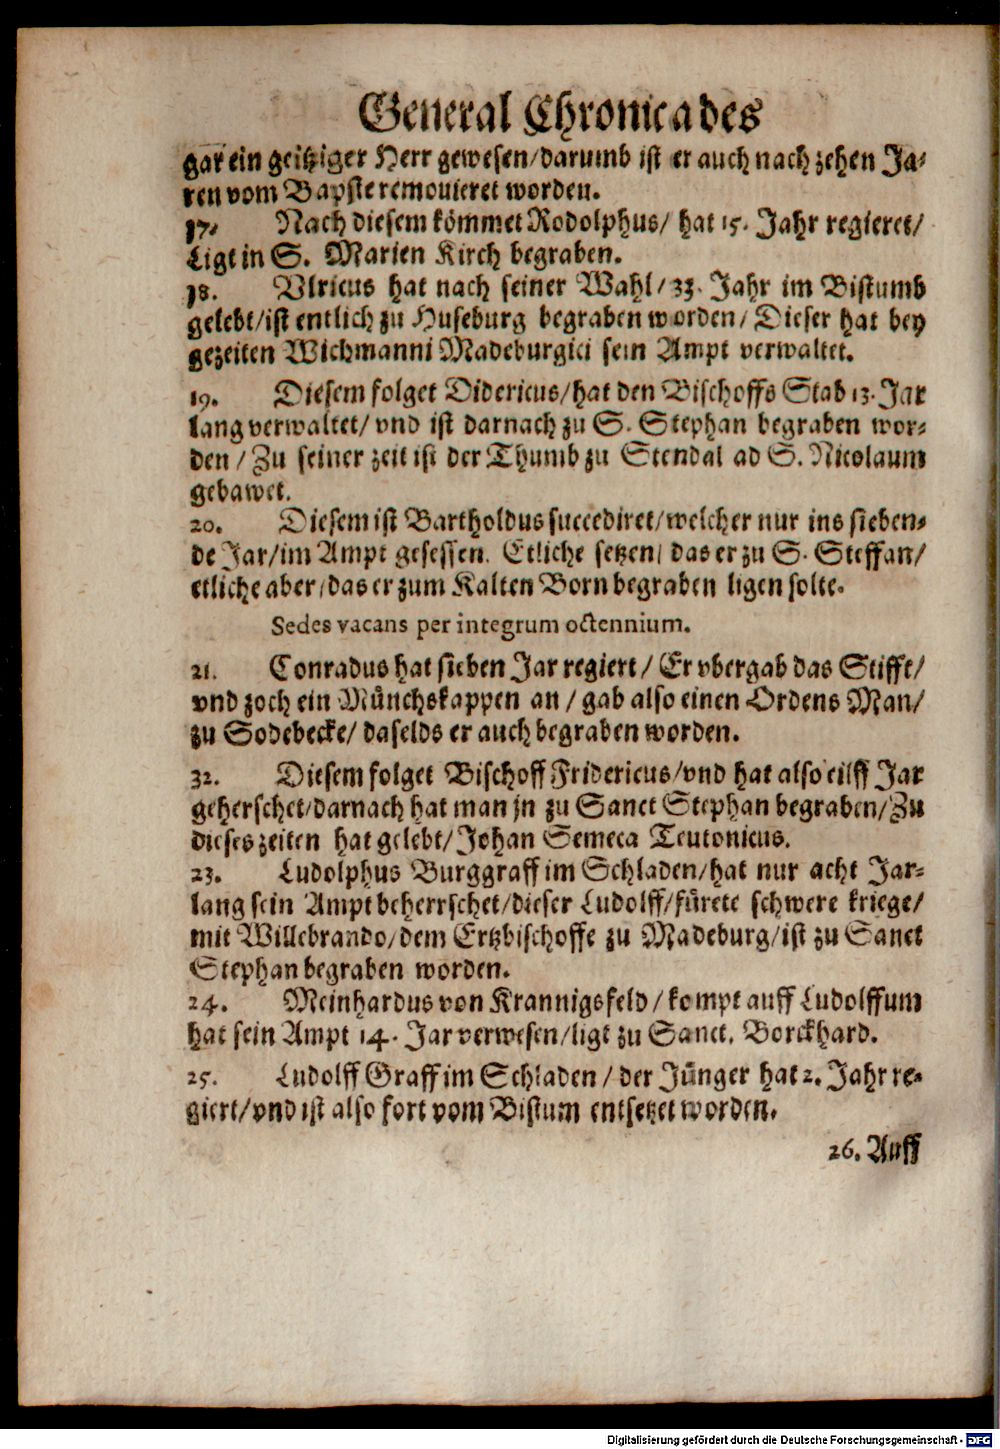 General Chronica des
gar ein geitziger Herr gewesen/darumb ist er auch nach zehen Ja-
ren vom Bapste remouieret worden.
17. Nach diesem kömmet Rodolphus/ hat 15. Jahr regieret/
Ligt in S. Marien Kirch begraben.
18. Vlricus hat nach seiner Wahl/ 33. Jahr im Bistumb
gelebt/ist entlich zu Huseburg begraben worden/ Dieser hat bey
gezeiten Wichmanni Madeburgici sein Ampt verwaltet.
19. Diesem folget Didericus/hat den Bischoffs Stab 13. Jar
lang verwaltet/ vnd ist darnach zu S. Stephan begraben wor-
den / Zu seiner zeit ist der Thumb zu Stendal ad S. Nicolaum
gebawet.
20. Diesem ist Bartholdus succediret/welcher nur ins sieben-
de Jar/im Ampt gesessen. Etliche setzen/ das er zu S. Steffan/
etliche aber/das er zum Kalten Born begraben ligen solte.
Sedes vacans per integrum octennium.
21. Conradus hat sieben Jar regiert/ Er vbergab das Stifft/
vnd zoch ein Münchskappen an / gab also einen Ordens Man/
zu Sodebecke/ daselds er auch begraben worden.
32. Diesem folget Bischoff Fridericus/vnd hat also eilff Jar
geherschet/darnach hat man jn zu Sanct Stephan begraben/Zu
dieses zeiten hat gelebt/Johan Semeca Teutonicus.
23. Ludolphus Burggraff im Schladen/hat nur acht Jar-
lang sein Ampt beherrschet/dieser Ludolff/fürete schwere kriege/
mit Willebrando/dem Ertzbischoffe zu Madeburg/ist zu Sanct
Stephan begraben worden.
24. Meinhardus von Krannigsfeld/ kompt auff Ludolffum
hat sein Ampt 14. Jar verwesen/ligt zu Sanct. Borckhard.
25. Ludolff Graff im Schladen / der Jünger hat 2. Jahr re-
giert/vnd ist also fort vom Bistum entsetzet worden.
26. Auff
Digitalisierung gefördert durch die Deutsche Forschungsgemeinschaft - DFG